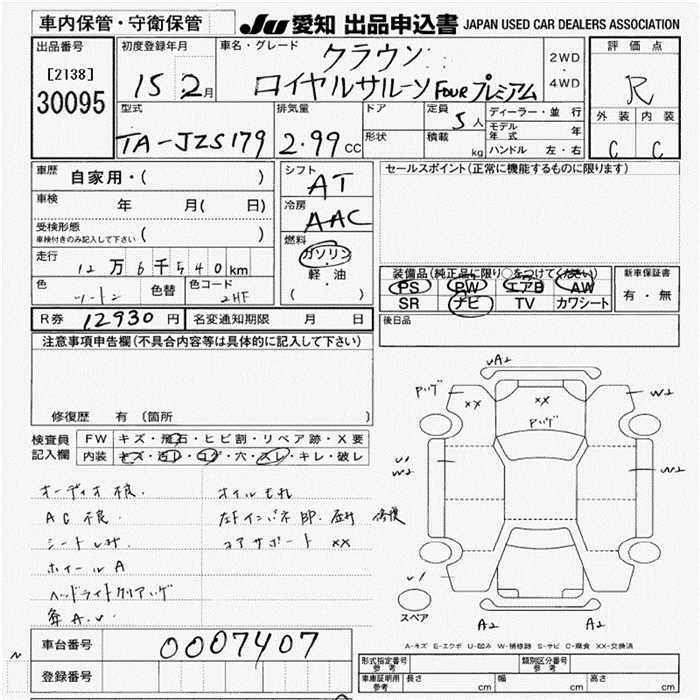 車内保管・守衛保管
JU 愛知 出品申込書 JAPAN USED CAR DEALERS ASSOCIATION
出品番号
[2138]
30095
初度登録年月
15 2月
車名・グレード
クラウン
ロイヤルサルーン FOUR プレミアム
2WD
・
4WD
評価点
R
外装 内装
C C
型式
TA-JZS179
排気量
2.99 CC
ドア
形状
定員 5 人
積載 kg
ディーラー・並行
モデル年式 年
ハンドル 左・右
車歴
自家用・( )
車検 年 月( 日)
受検形態
車検付きのみ記入して下さい ( )
走行
12万6千540km
色
ツートン
色替
色コード
2HF
シフト
AT
冷房
AAC
燃料
ガソリン
・
軽油
( )
セールスポイント(正常に機能するものに限ります)
装備品(純正品に限り○をつけてください)
PS PW エアB AW
SR ナビ TV カワシート
新車保証書
有・無
R券 12930 円 名変通知期限 月 日
後日品
注意事項申告欄(不具合内容等は具体的に記入して下さい)
修復歴 有 〔箇所 〕
検査員記入欄
FW キズ・飛石・ヒビ割・リペア跡・X要
内装 キズ・汚レ・コゲ・穴・スレ・キレ・破レ
オーディオ不良.
AC 不良.
ホイール A
オイルもれ
コアサポート XX
UA2
W2
XX
XX
U1
W2
W2
U1
A2
A2
スペア
A-キズ E-エクボ U-凹み W-補修跡 S-サビ C-腐食 XX-交換済
車台番号
0007407
登録番号
形式指定番号
参考
類別区分番号
参考
車庫証明用
参考
長さ cm 幅 cm 高さ cm